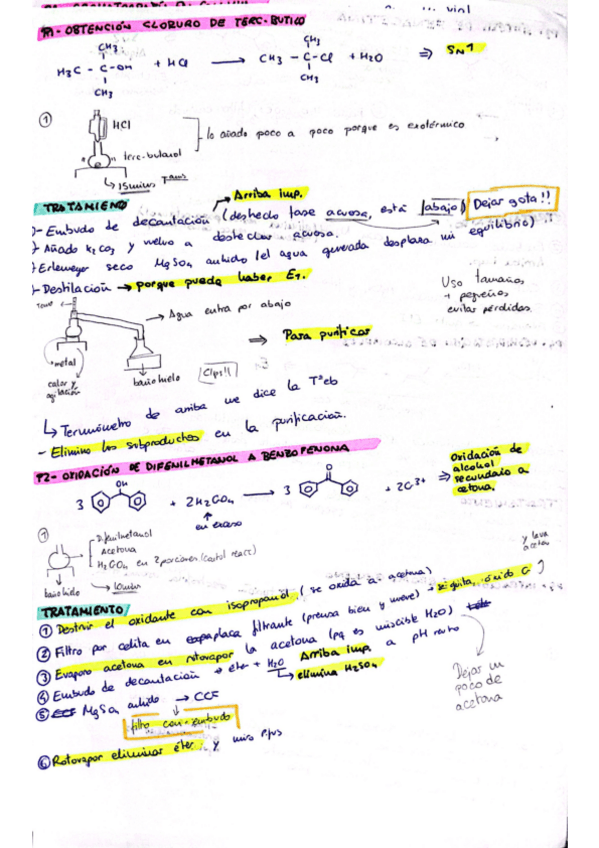 P1- OBTENCIÓN CLORURO DE TERC-BUTILO
CH3
H3C - C - OH + HCl → CH3 - C - Cl + H2O ⇒ SN1
CH3
CH3
CH3
① HCl
lo añado poco a poco porque es exotérmico
terc-butanol
15 mins
TRATAMIENTO
Arriba imp.
- Embudo de decantación (deshecho fase acuosa, está abajo) Dejar gota!!
- Añado K2CO3 y vuelvo a deshechar acuosa.
- Erlenmeyer seco MgSO4 anhido (el agua generada desplaza mi equilibrio)
- Destilación → porque puede haber E1.
Uso tamaños
+ pequeños
evitar pérdidas.
→ Agua entra por abajo
⇒ Para purificar
metal
calor y
agitación
baño hielo
Clips!!
↳ Termómetro de arriba me dice la Tªeb
- Elimino los subproductos en la purificación.
P2- OXIDACIÓN DE DIFENILMETANOL A BENZOFENONA
OH
O
3 + 2H2CrO4 → 3 + 2Cr3+
en exceso
⇒ Oxidación de
alcohol
secundario a
cetona.
①
Difenilmetanol
Acetona
H2CrO4 en 2 porciones (control reacc)
baño hielo
10 mins
y lava
acetona
TRATAMIENTO
① Destruir el oxidante con isopropanol, (se oxida a acetona)
② Filtro por celita en placa filtrante (prensa bien y nueve)
③ Evaporo acetona en rotovapor la acetona (pq es miscible H2O)
④ Embudo de decantación → éter + H2O Arriba imp. a pH neutro
→ elimina H2SO4
⑤ MgSO4 anhido → CCF
filtro con embudo
Dejar un
poco de
acetona
⑥ Rotovapor eliminar éter y miro P.fus